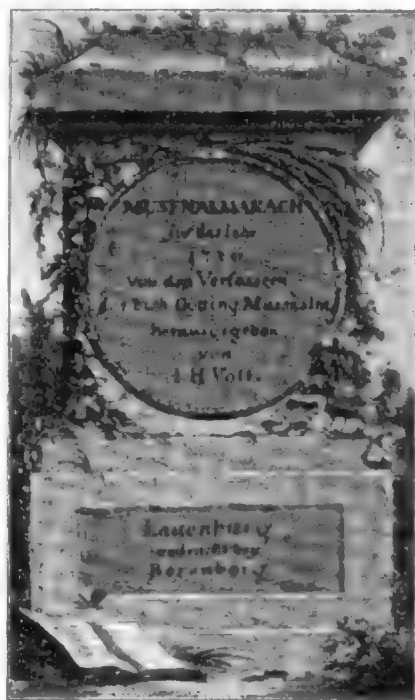 MUSENALMANACH
für das Jahr
von den Verfassern
bish. Götting. Musenalm.
herausgegeben
von
I. H. Voß.
Lauenburg
gedruckt bey
Berenberg